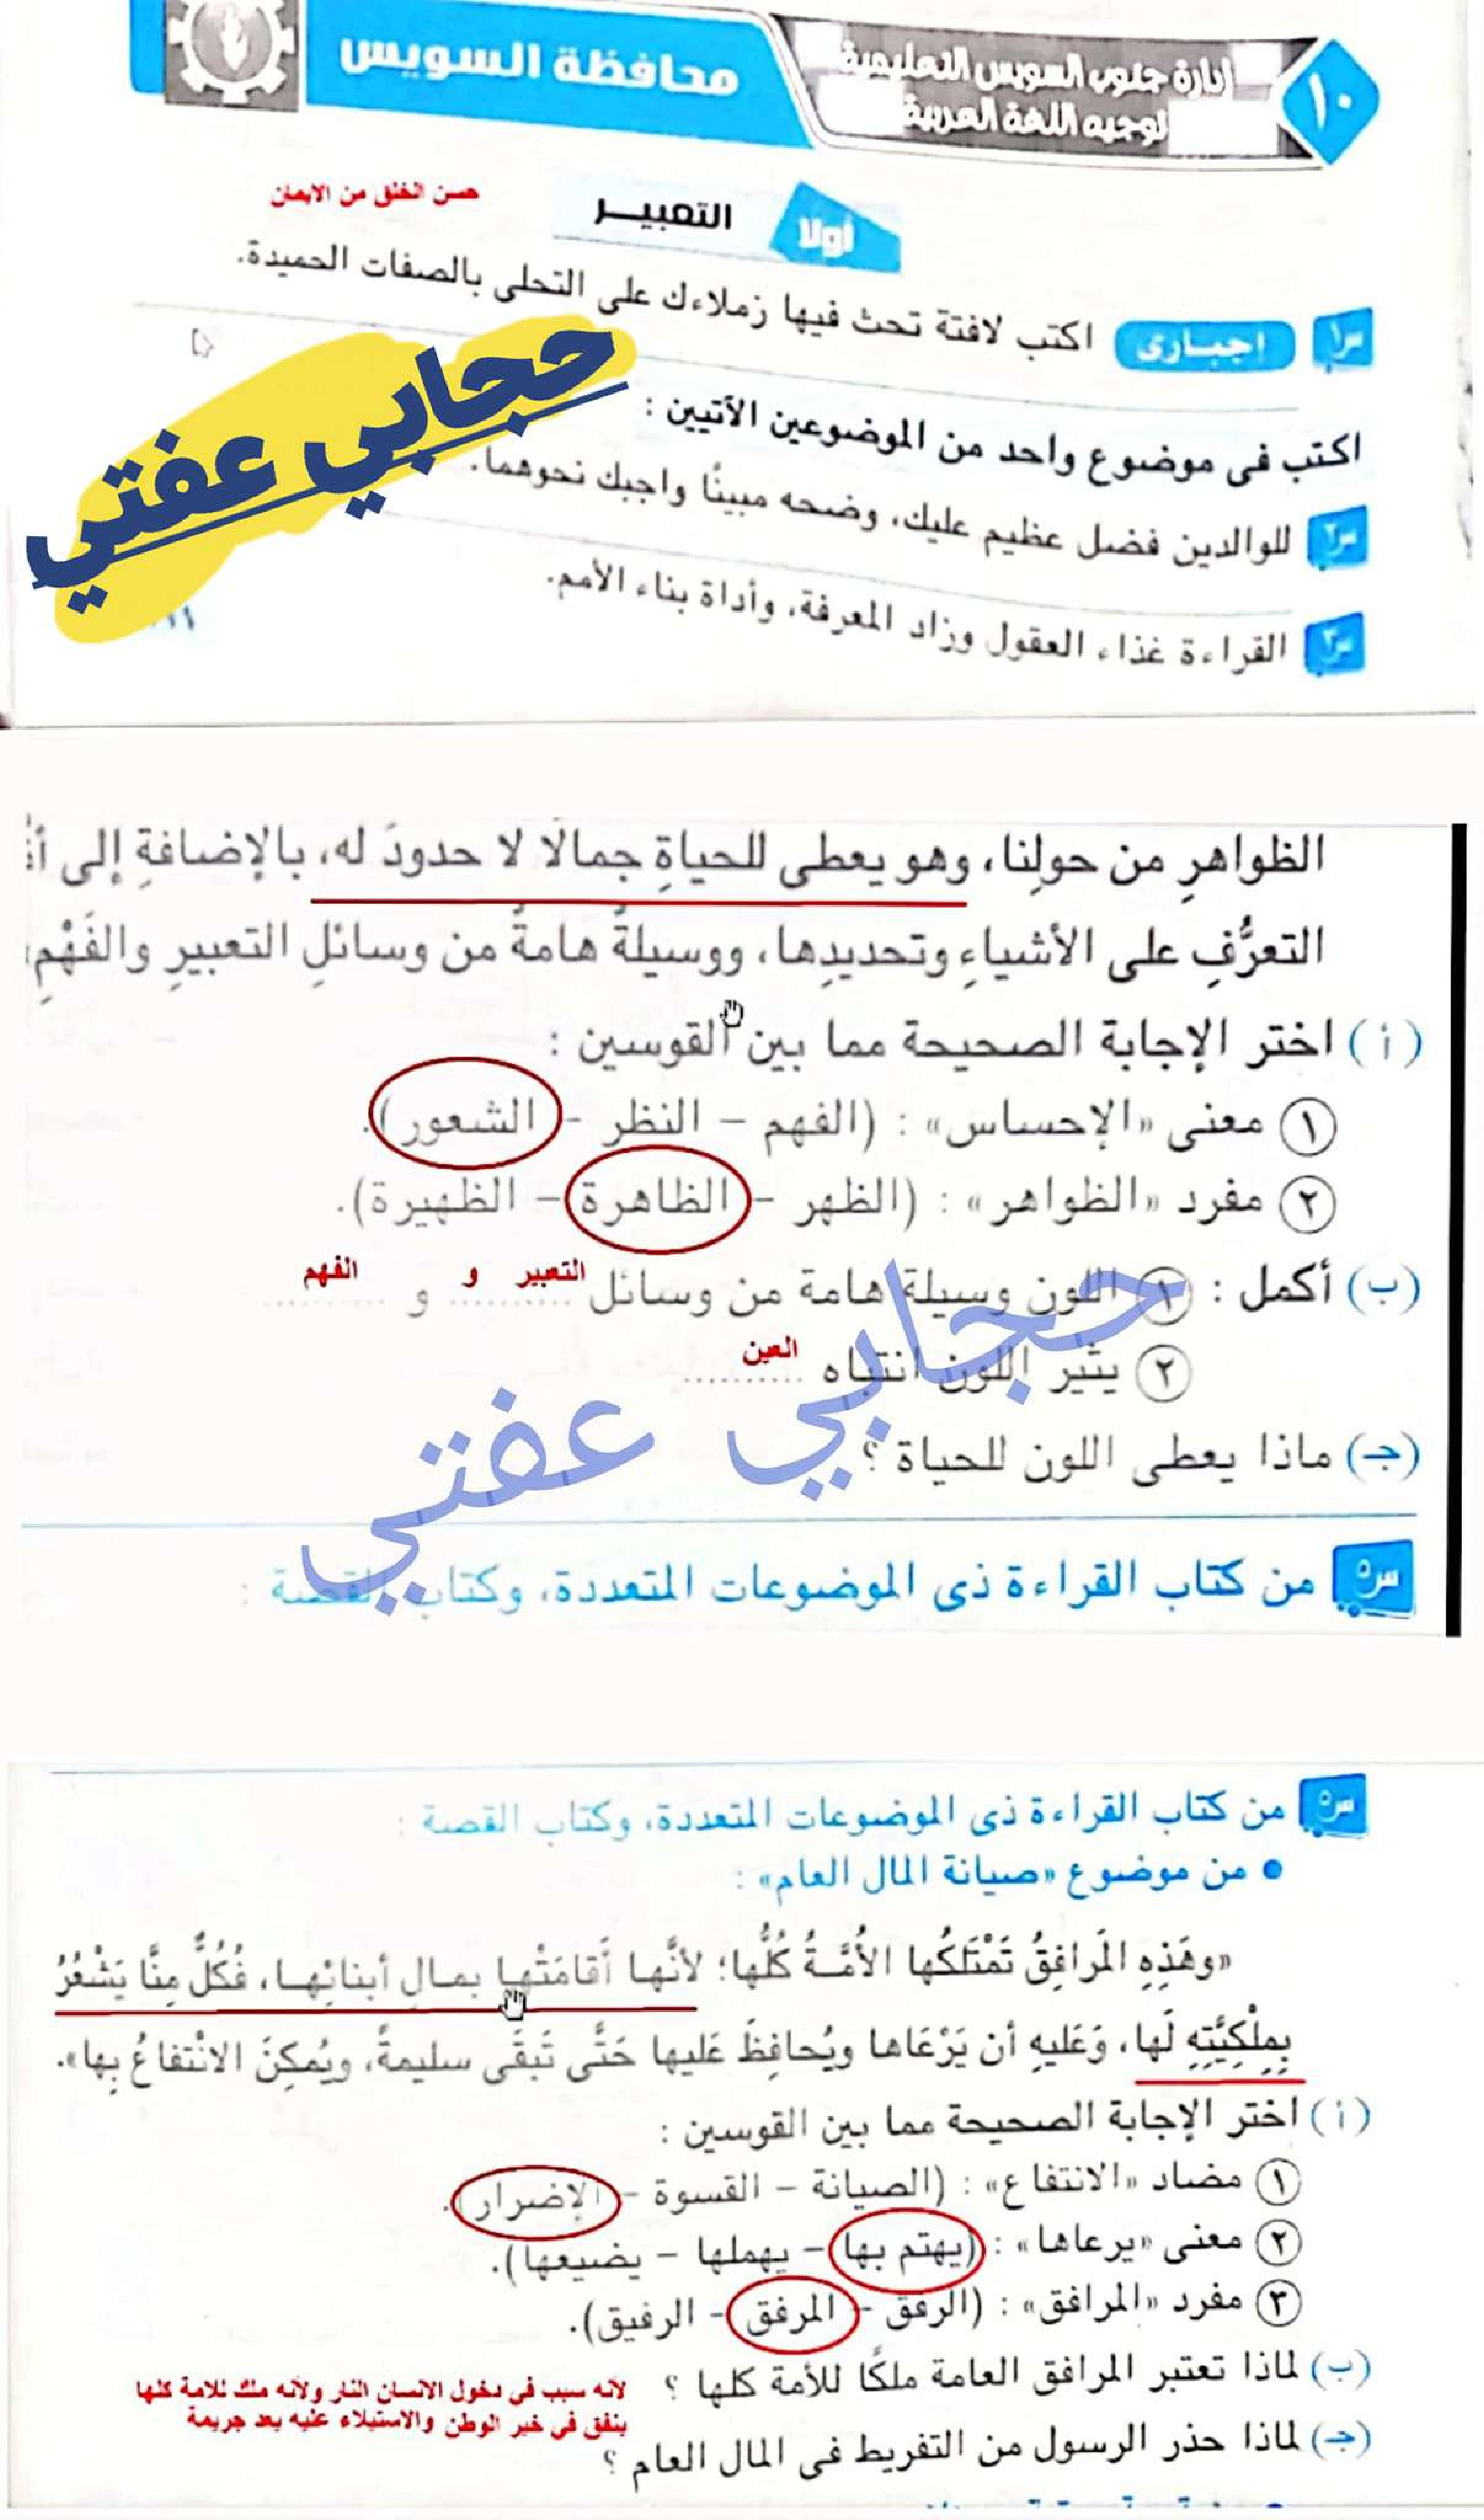 ١٠
إدارة جنوب السويس التعليمية
توجيه اللغة العربية
محافظة السويس
أولا
التعبيـــر
حسن الخلق من الايمان
س١ إجبـارى اكتب لافتة تحث فيها زملاءك على التحلى بالصفات الحميدة.
اكتب فى موضوع واحد من الموضوعين الآتيين :
س٢ للوالدين فضل عظيم عليك، وضحه مبينًا واجبك نحوهما.
س٣ القراءة غذاء العقول وزاد المعرفة، وأداة بناء الأمم.
حجابي عفتي
١١
الظواهرِ من حولِنا، وهو يعطى للحياةِ جمالًا لا حدودَ له، بالإضافةِ إلى
التعرُّفِ على الأشياءِ وتحديدِها، ووسيلةٌ هامةٌ من وسائلِ التعبيرِ والفَهْمِ
(أ) اختر الإجابة الصحيحة مما بين القوسين :
١ معنى «الإحساس» : (الفهم – النظر – الشعور).
٢ مفرد «الظواهر» : (الظهر – الظاهرة – الظهيرة).
التعبير و الفهم
(ب) أكمل : ١ اللون وسيلة هامة من وسائل .......... و ..........
العين
٢ يثير اللون انتباه ..........
(جـ) ماذا يعطى اللون للحياة ؟
حجابي عفتي
س٥ من كتاب القراءة ذى الموضوعات المتعددة، وكتاب القصة :
س٥ من كتاب القراءة ذى الموضوعات المتعددة، وكتاب القصة :
• من موضوع «صيانة المال العام» :
«وهَذِهِ المَرافِقُ تَمْتَلكُها الأمَّـةُ كُلُّها؛ لأنَّها أَقامَتْها بمـالِ أبنائِهـا، فَكُلٌّ مِنَّا يَشْعُرُ
بِمِلْكِيَّتِهِ لَها، وَعَليهِ أن يَرْعَاها ويُحافِظَ عَليها حَتَّى تَبقَى سليمةً، ويُمكِنَ الانْتفاعُ بِها».
(أ) اختر الإجابة الصحيحة مما بين القوسين :
١ مضاد «الانتفاع» : (الصيانة – القسوة – الإضرار).
٢ معنى «يرعاها» : (يهتم بها – يهملها – يضيعها).
٣ مفرد «المرافق» : (الرفق – المرفق – الرفيق).
(ب) لماذا تعتبر المرافق العامة ملكًا للأمة كلها ؟
لأنه سبب فى دخول الانسان النار ولأنه ملك للامة كلها
ينفق فى خير الوطن والاستيلاء عليه يعد جريمة
(جـ) لماذا حذر الرسول من التفريط فى المال العام ؟